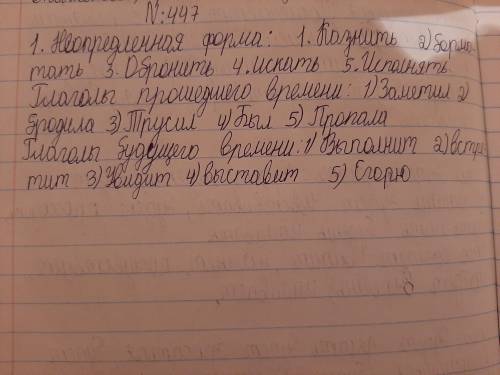 N:447
1. Неопредленная форма: 1. Казнить 2) бормо
тать 3. Обронить 4. искать 5. Исполнять
Глаголы прошедшего времени: 1) Заметил 2)
бродила 3) Трусил 4) Был 5) Пропала
Глаголы будущего времени: 1) Выполнит 2) встре
тит 3) Увидит 4) выставит 5) Сгорю